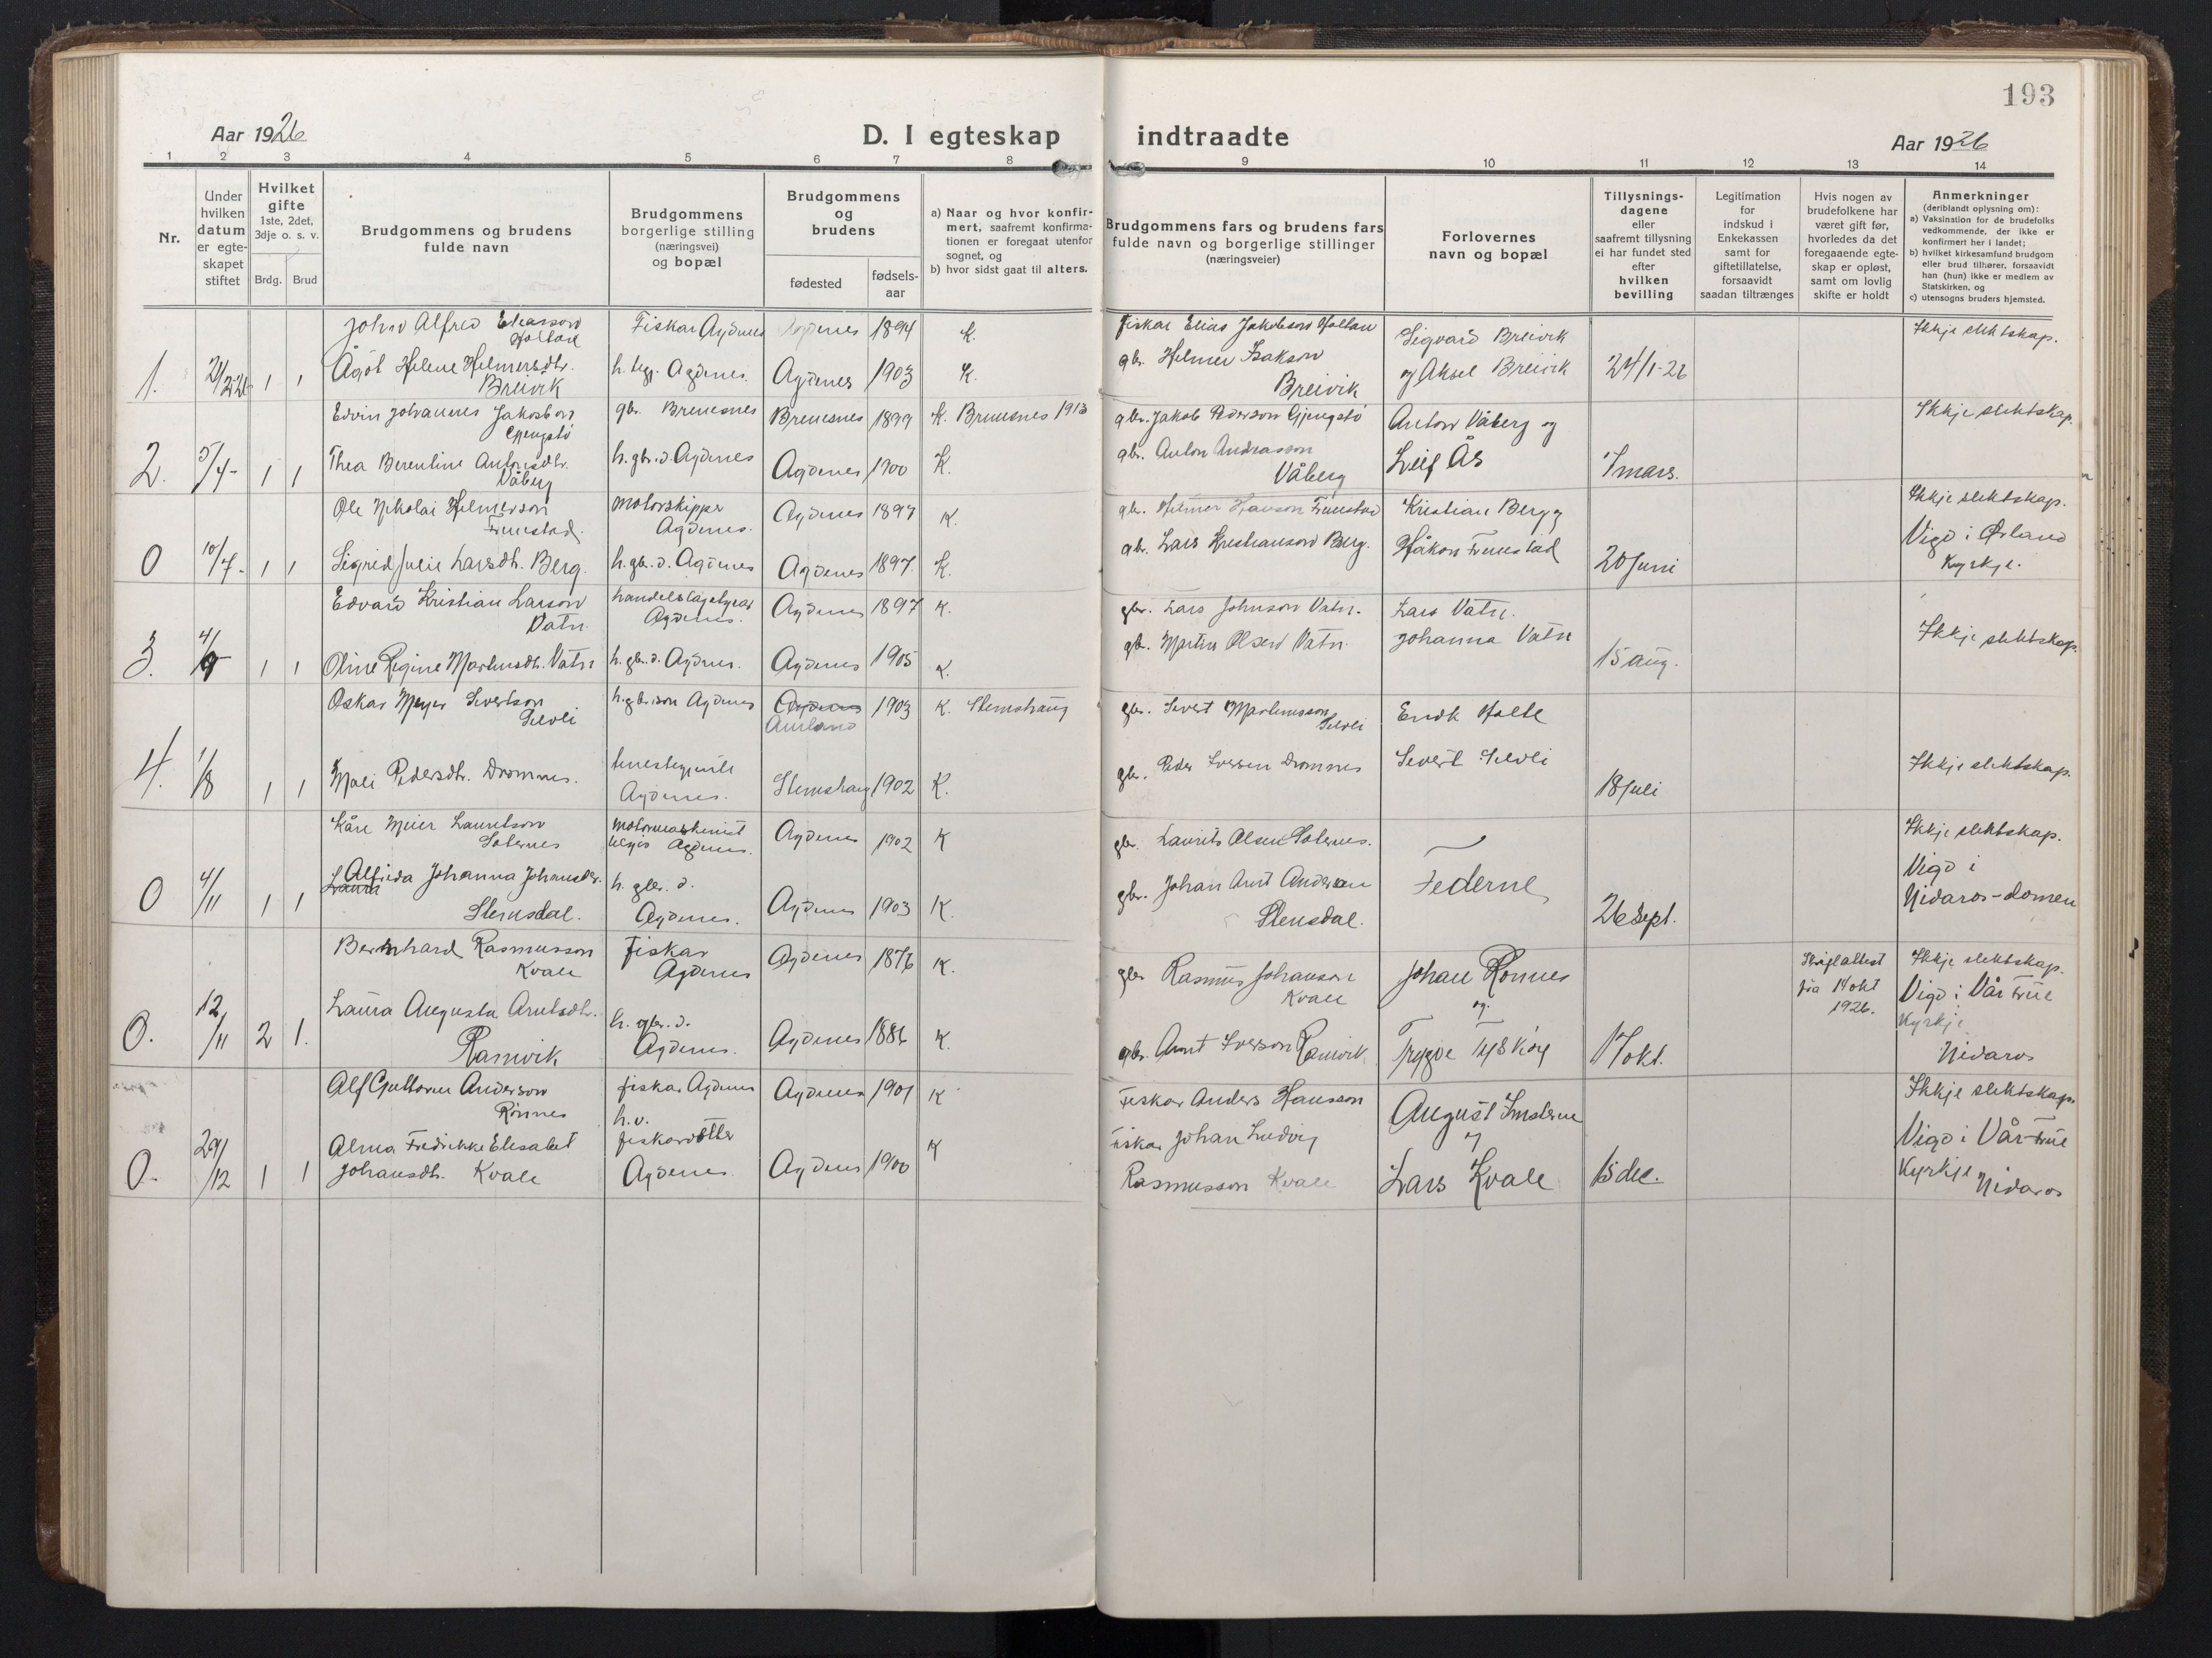 193
Aar 1926
D. I egteskap
indtraadte
Aar 1926
1 2 3 4 5 6 7 8 9 10 11 12 13 14
Nr.
Under hvilken datum er egteskapet stiftet
Hvilket gifte
1ste, 2det, 3dje o. s. v.
Brdg. Brud
Brudgommens og brudens fulde navn
Brudgommens borgerlige stilling (næringsvei) og bopæl
Brudgommens og brudens
fødested
fødselsaar
a) Naar og hvor konfirmert, saafremt konfirmationen er foregaat utenfor sognet, og
b) hvor sidst gaat til alters.
Brudgommens fars og brudens fars fulde navn og borgerlige stillinger (næringsveier)
Forlovernes navn og bopæl
Tillysningsdagene eller saafremt tillysning ei har fundet sted efter hvilken bevilling
Legitimation for indskud i Enkekassen samt for giftetillatelse, forsaavidt saadan tiltrænges
Hvis nogen av brudefolkene har været gift før, hvorledes da det foregaaende egteskap er opløst, samt om lovlig skifte er holdt
Anmerkninger
(deriblandt oplysning om):
a) Vaksination for de brudefolks vedkommende, der ikke er konfirmert her i landet;
b) hvilket kirkesamfund brudgom eller brud tilhører, forsaavidt han (hun) ikke er medlem av Statskirken, og
c) utensogns bruders hjemsted.
Johan Alfred Eliasson Holtan Fiskar Agdenes Agdenes 1894 K. Fiskar Elias Jakobson Holtan Sigvard Breivik Ikkje slektskap.
1. 21/2-26 1 1 Ågot Helene Helmersdtr. Breivik h. Agdenes. Agdenes 1903 K. gbr. Helmer Isakson Breivik og Aksel Breivik 24/1-26
Edvin Johannes Jakobson Gjengstø gbr. Brenesnes Brenesnes 1899 K. Brenesnes 1913 gbr. Jakob Pederson Gjengstø Anton Våberg og Ikkje slektskap.
2. 5/4- 1 1 Thea Berentine Antonsdtr. Våberg h. gbr.d. Agdenes Agdenes 1900 K. gbr. Anton Andrasson Våberg Leif Ås 7 mars.
Ole Nikolai Helmerson Frunstad. motorskipper Agdenes. Agdenes 1897 K. gbr. Helmer Hanson Frunstad Kristian Berg og Ikkje slektskap.
0 10/7- 1 1 Sigrid Julie Larsdtr. Berg. h. gbr. d. Agdenes Agdenes 1897. K. gbr. Lars Kristianson Berg. Håkon Frunstad 20 Juni Vigd i Ørland Kyrkje.
Edvard Kristian Larson Vatn handelslagstyrar Agdenes. Agdenes 1897 K. gbr. Lars Johnson Vatn. Lars Vatn.
3. 4/9- 1 1 Oline Regine Martinusdtr. Vatn h. gbr. d. Agdenes. Agdenes 1905 K. gbr. Martin Olsen Vatn. Johanna Vatn 15 aug. Ikkje slektskap.
Oskar Meyer Sivertson Selvli h. gbr.son Agdenes Agdenes 1903 K. Stemshaug gbr. Sivert Martinusson Selvli Erik Holte
4. 1/8 1 1 Mali Pedersdtr. Dromnes. tenestegjente Agdenes. Stemshaug 1902 K. gbr. Peder Iversen Dromnes Sivert Selvli 18 Juli Ikkje slektskap.
Kåre Meier Lauritson Solernes motormaskinist Agdenes. Agdenes 1902 K gbr. Laurits Olsen Solernes. Ikkje slektskap.
0 4/11 1 1 Laura Alfrida Johanna Johansdtr. Stensdal. h. gbr. d. Agdenes. Agdenes 1903 K. gbr. Johan Arnt Anderson Stensdal. Federne 26 Sept. Vigd i Nidaros-domen
Bernhard Rasmusson Kvale Fiskar Agdenes Agdenes 1876 K. gbr. Rasmus Johanson Kvale Johan Rønnes og Skifteattest frå 14 okt 1926. Ikkje slektskap.
0. 12/11 2 1. Laura Augusta Arntsdtr. Ramvik h. gbr. d. Agdenes. Agdenes 1886 K. gbr. Arnt Iverson Ramvik Trygve Tyskøy 17 okt. Vigd i Vår Frue Kyrkje Nidaros
Alf Guttorm Anderson Rønnes fiskar Agdenes Agdenes 1901 K Fiskar Anders Hansson August Imsterne og Ikkje slektskap.
0. 29/12 1 1 Alma Fredrikke Elisabet Johansdtr. Kvale h.v. fiskardotter Agdenes. Agdenes 1900 K fiskar Johan Ludvig Rasmusson Kvale Lars Kvale 15 dec. Vigd i Vår-Frue Kyrkje Nidaros